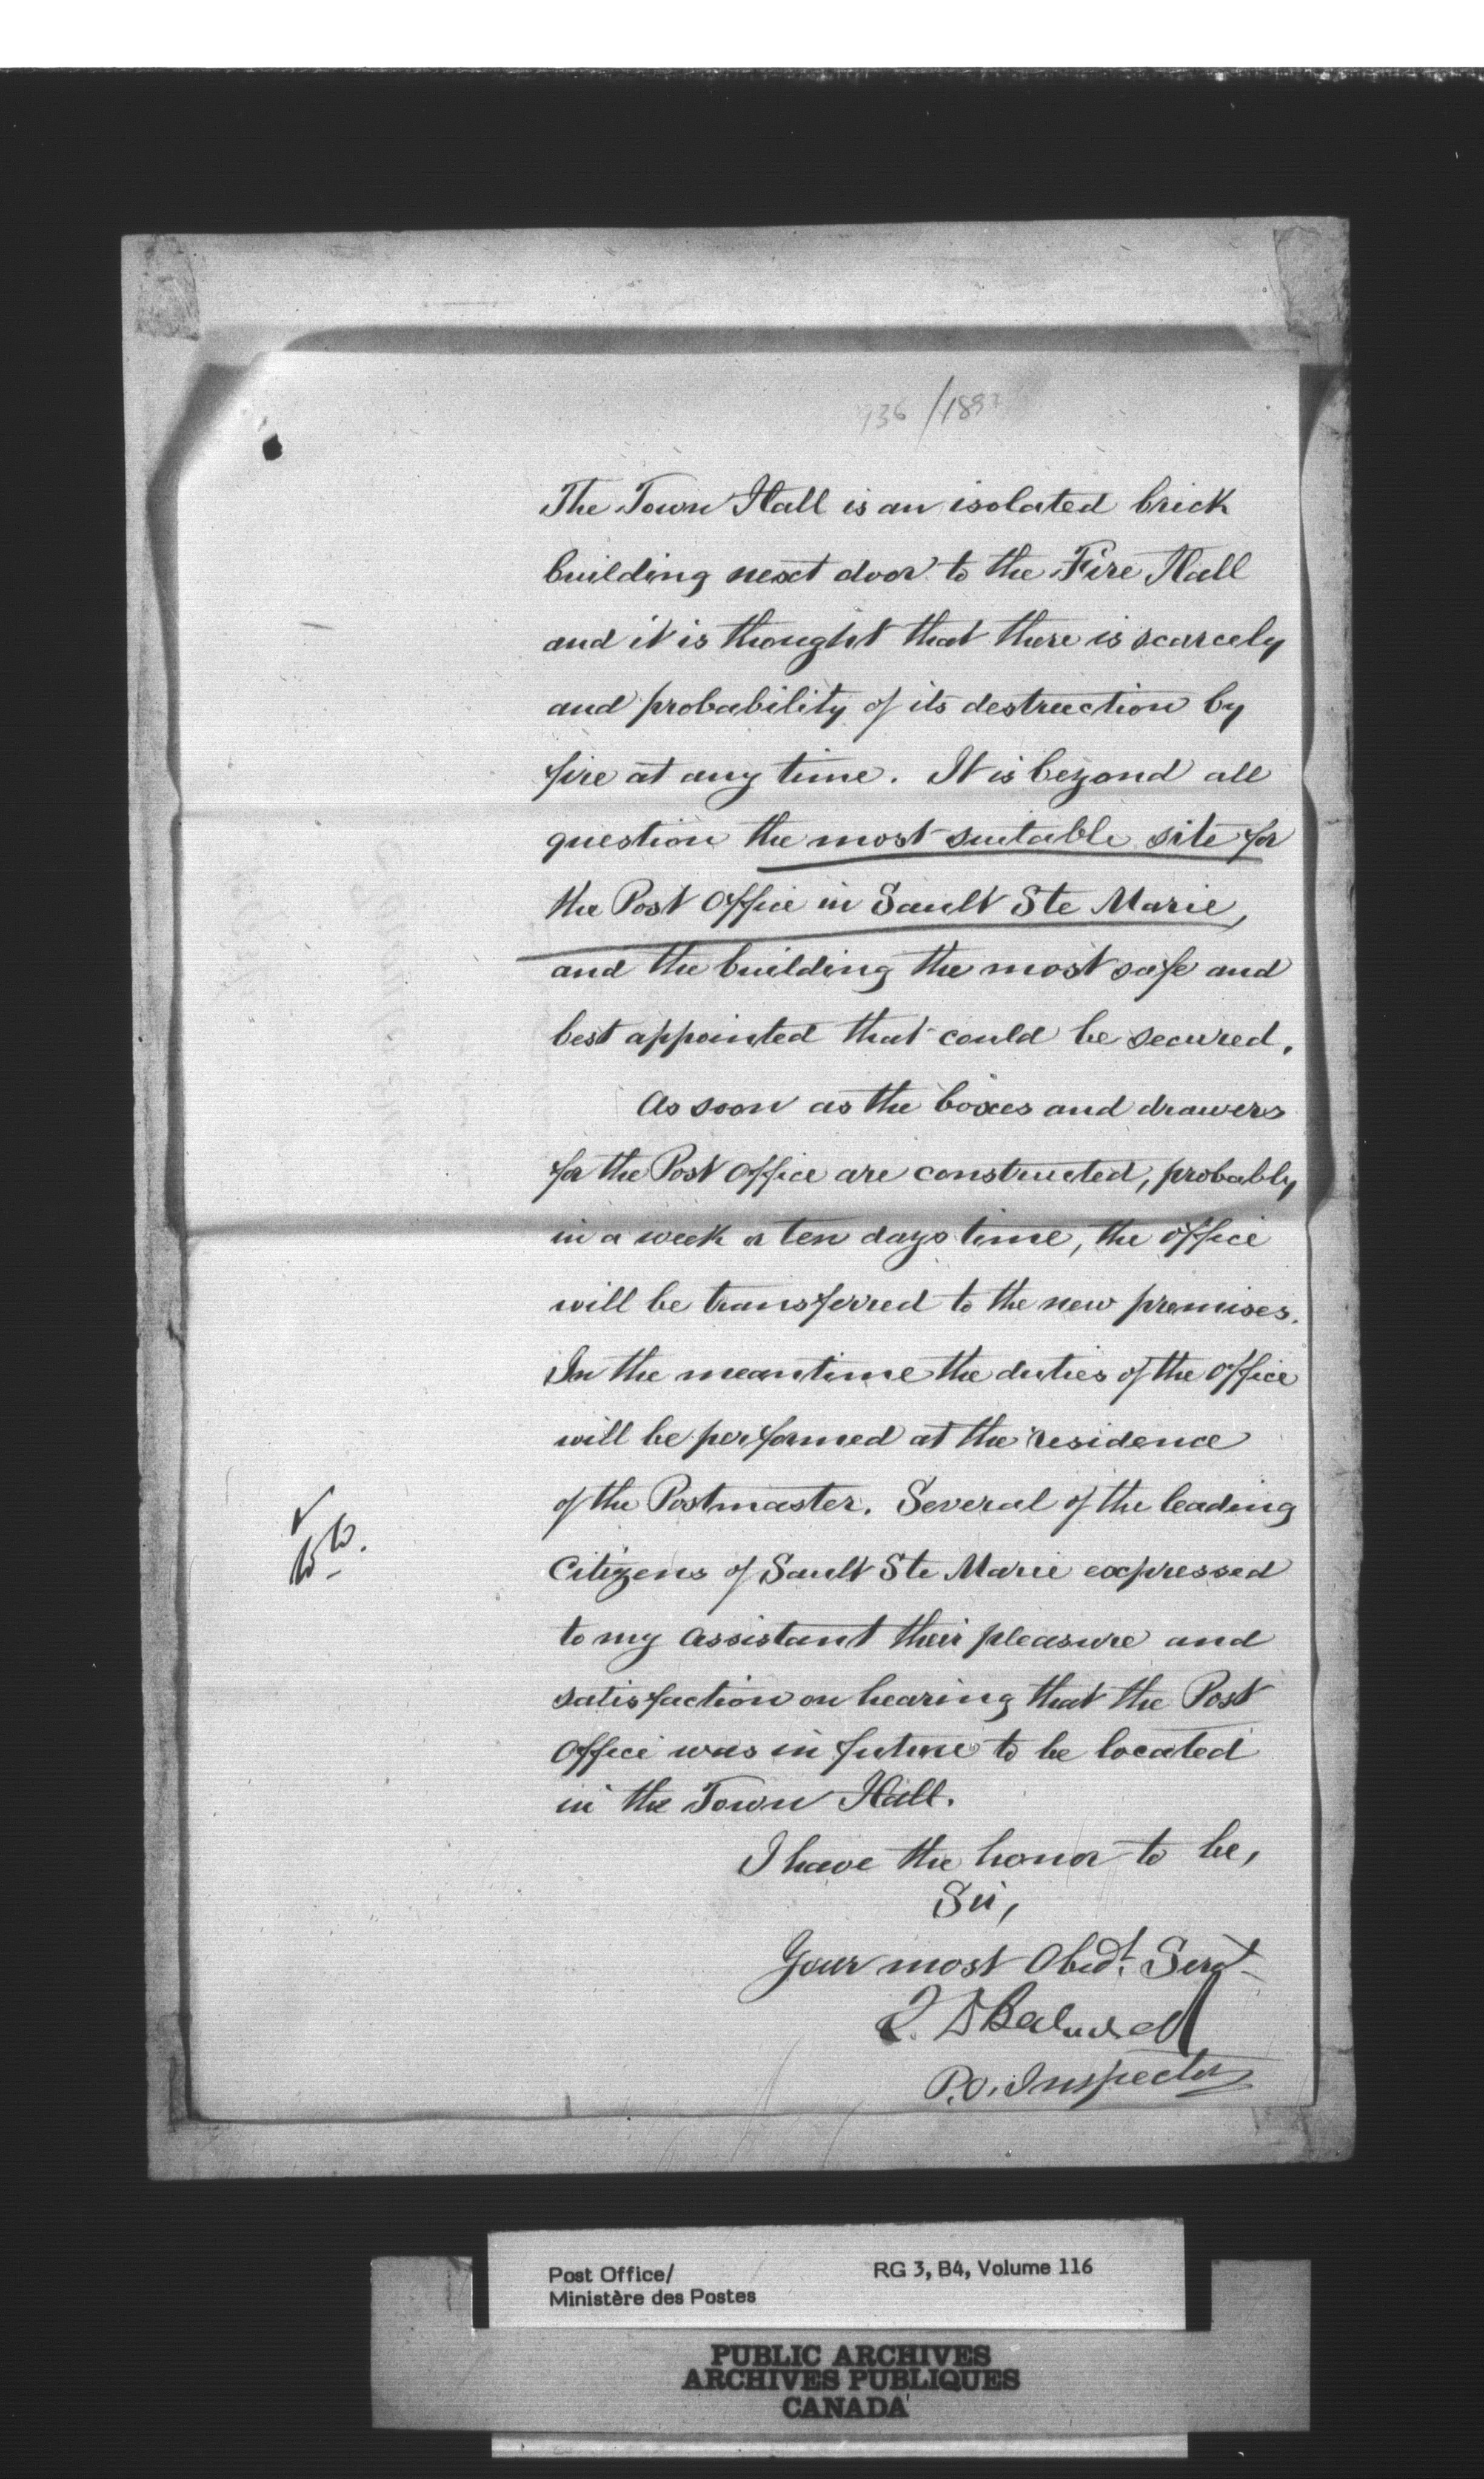 936/1897
The Town Hall is an isolated brick
building next door to the Fire Hall
and it is thought that there is scarcely
and probability of its destruction by
fire at any time. It is beyond all
question the most suitable site for
the Post Office in Sault Ste Marie,
and the building the most safe and
best appointed that could be secured.
As soon as the boxes and drawers
for the Post Office are constructed, probably
in a week or ten days time, the office
will be transferred to the new premises.
In the meantime the duties of the Office
will be performed at the residence
of the Postmaster. Several of the leading
Citizens of Sault Ste Marie expressed
to my Assistant their pleasure and
satisfaction on hearing that the Post
Office was in future to be located
in the Town Hall.
I have the honor to be,
Sir,
Your most Obedt. Servt
P.O. Inspector
Post Office/
Ministère des Postes
RG 3, B4, Volume 116
PUBLIC ARCHIVES
ARCHIVES PUBLIQUES
CANADA